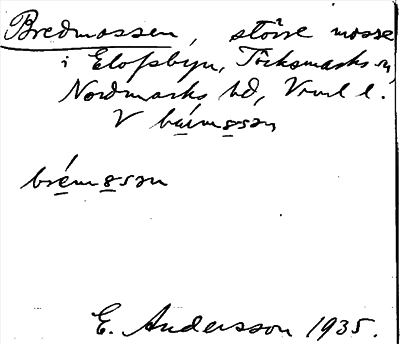 Bredmossen, större mosse
i Elofsbyn, Töcksmarks sn,
Nordmarks hd, Vrml l.
V brémosən
brémosən
E. Andersson 1935.